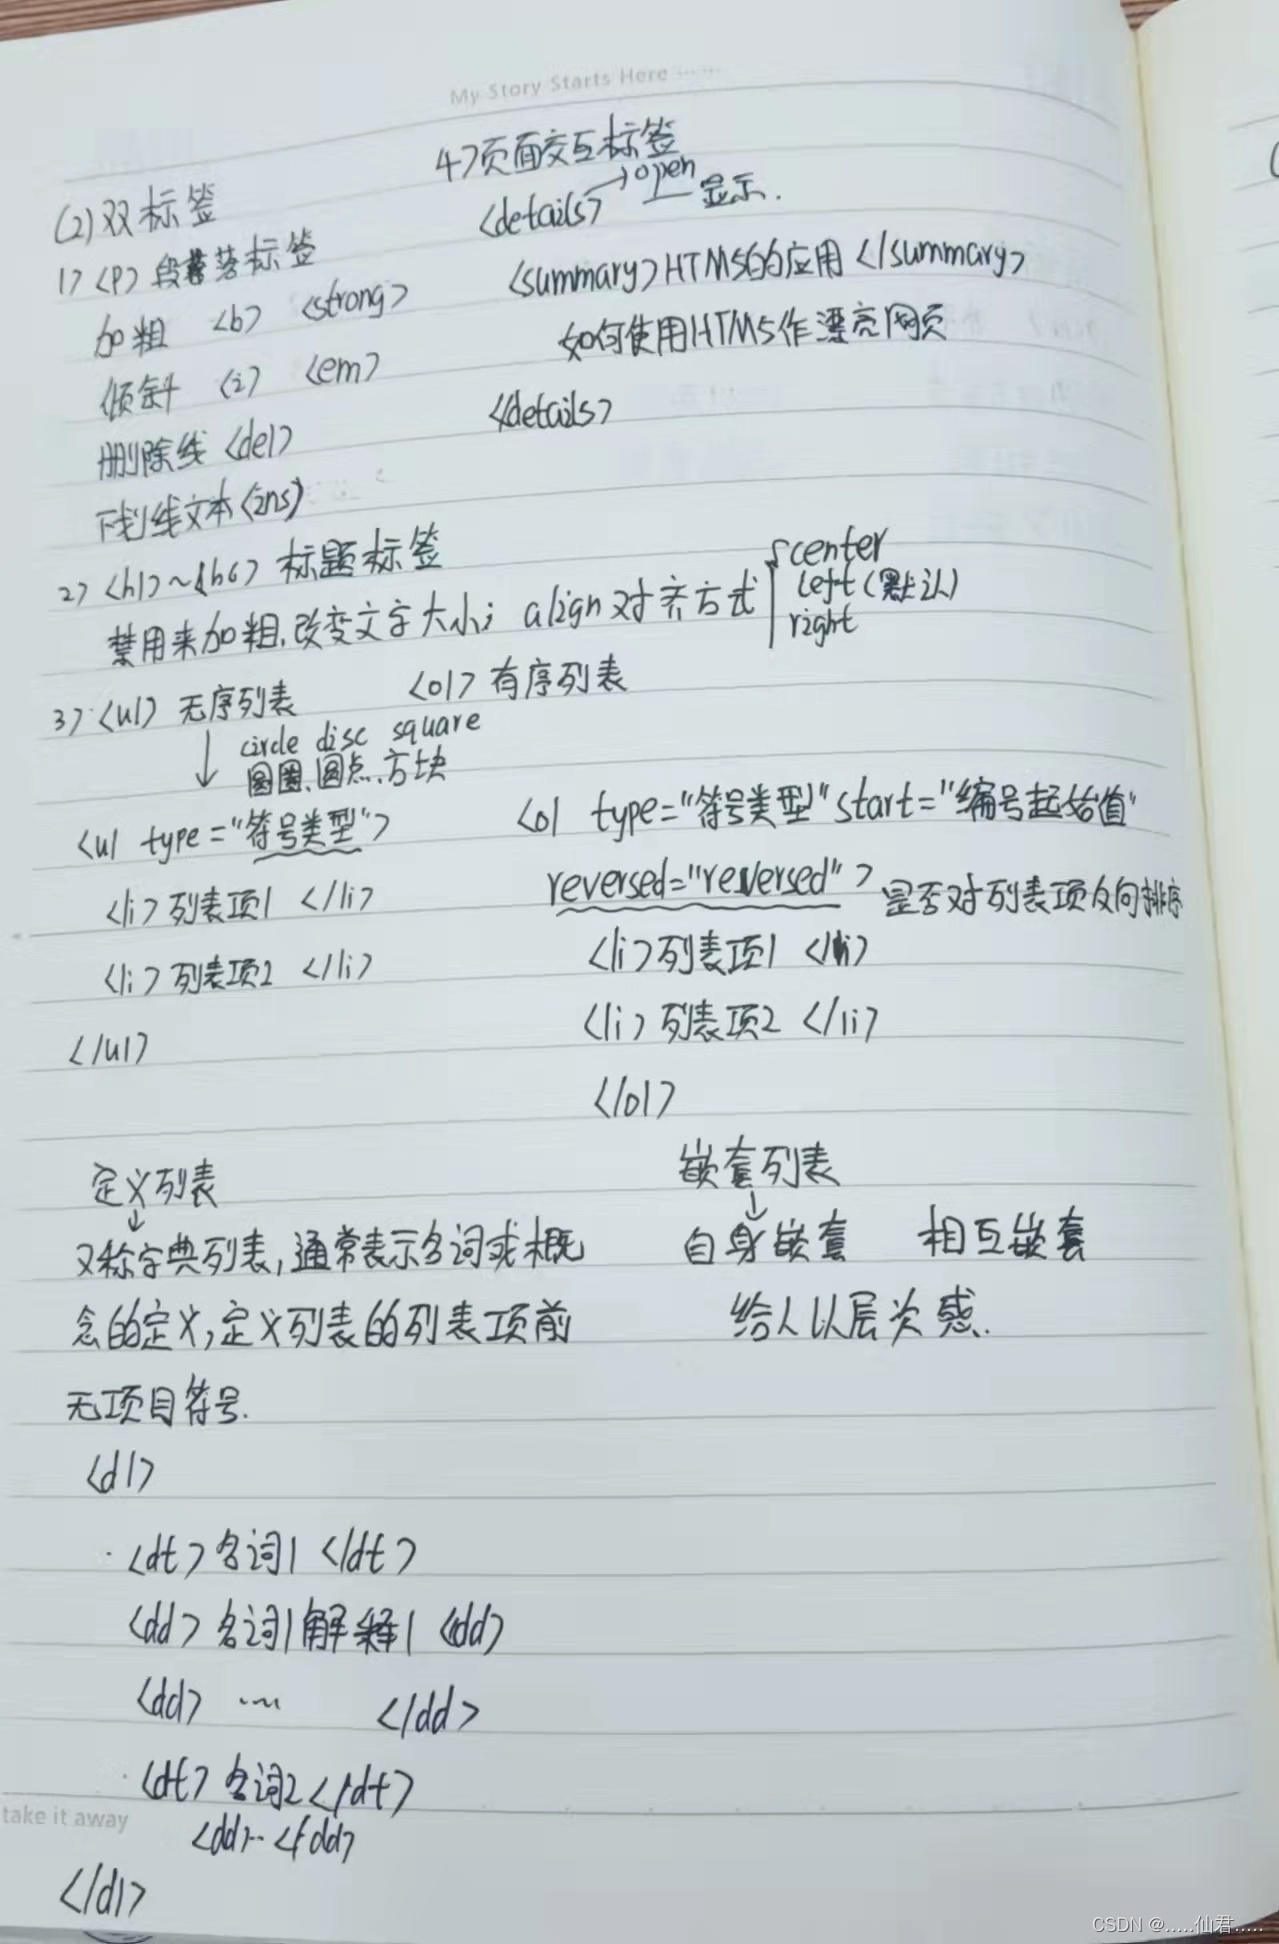 My Story Starts Here ······
4>页面交互标签
<details> → open 显示.
<summary>HTM5的的应用</summary>
如何使用HTM5作漂亮网页
</details>
(2)双标签
1> <P> 段落标签
加粗 <b> <strong>
倾斜 <i> <em>
删除线 <del>
下划线文本<ins>
2> <h1>~<h6> 标题标签
禁用来加粗.改变文字大小; align对齐方式
center
left(默认)
right
3> <ul> 无序列表 <ol> 有序列表
↓ circle disc square
圆圈.圆点.方块
<ul type="符号类型">
<li>列表项1 </li>
<li>列表项2 </li>
</ul>
<ol type="符号类型" start="编号起始值"
reversed="reversed"> 是否对列表项反向排序
<li>列表项1 </li>
<li>列表项2 </li>
</ol>
定义列表
↓
又称字典列表,通常表示名词或概
念的定义,定义列表的列表项前
无项目符号.
<dl>
<dt>名词1 </dt>
<dd>名词1解释1 <dd>
<dd> ... </dd>
<dt>名词2</dt>
<dd>..</dd>
</dl>
嵌套列表
↓
自身嵌套 相互嵌套
给人以层次感.
take it away
CSDN @.....仙君.....